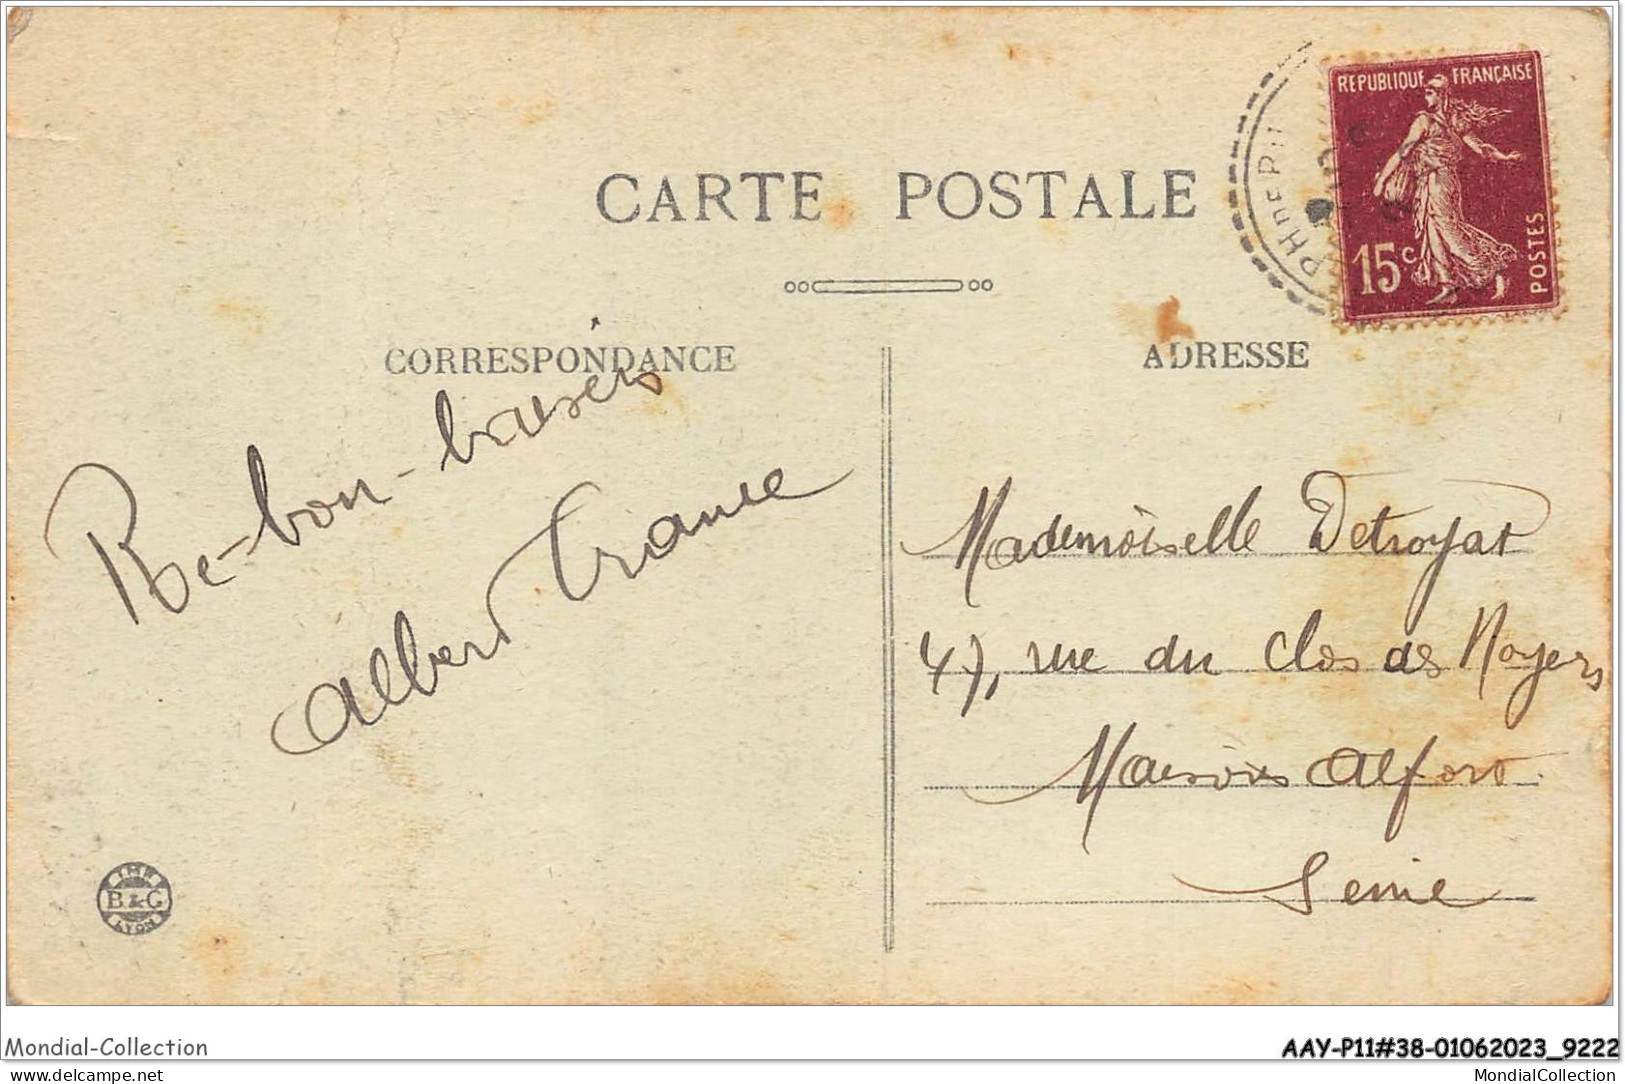 REPUBLIQUE FRANÇAISE
15c
POSTES
CARTE POSTALE
CORRESPONDANCE
ADRESSE
Re-bon-baisers
Albert France
Mademoiselle Detroyat
47, rue du Clos des Noyers
Maisons Alfort
Seine
IMP.
B & G
LYON
Mondial-Collection
AAY-P11#38-01062023_9222
delcampe.net
MondialCollection